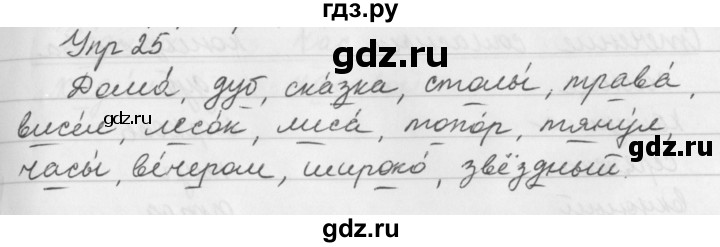 гдз.ру
Упр 25
gdz.ru
Дома́, дуб, ска́зка, столы́, трава́,
gdz.ru
gdz.ru
висе́л, лесо́к, лиса́, топо́р, тяну́л,
часы́, ве́чером, широко́, звёздный.
gdz.ru
gdz.ru
gdz.ru